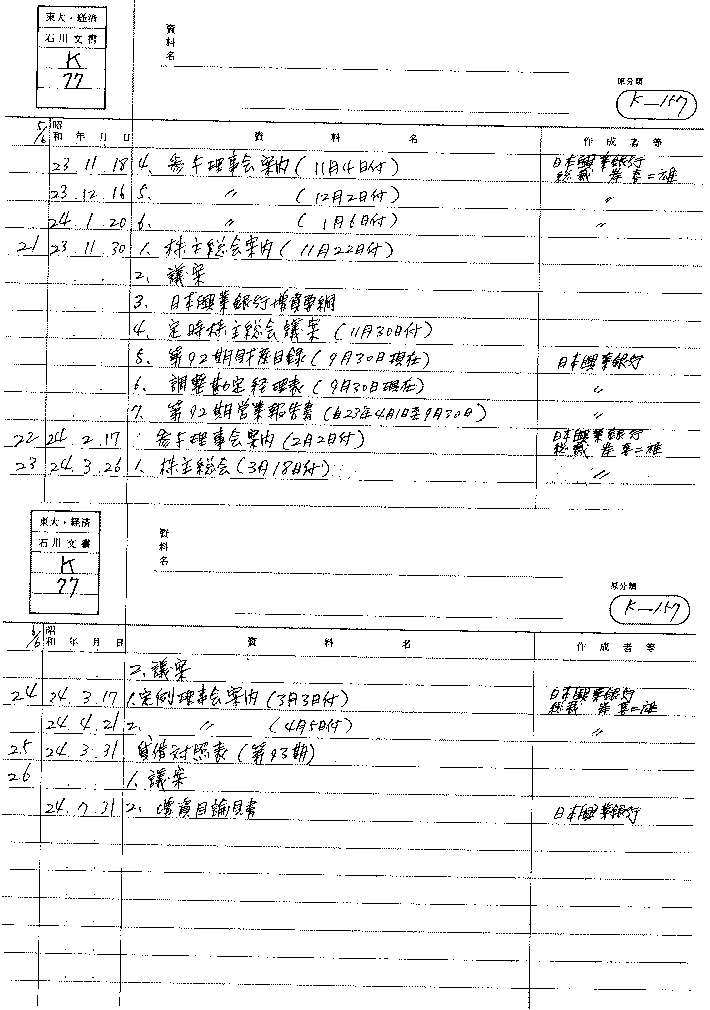 東大・経済
石川文書
K
77
資料名
原分類
K-157
5/6 昭和 年 月 日 資料名 作成者等
23. 11. 18 4. 参与理事会案内(11月4日付) 日本興業銀行
総裁
23. 12. 16 5. 〃 (12月2日付) 〃
24. 1. 20 6. 〃 (1月6日付) 〃
21 23. 11. 30 1. 株主総会案内(11月22日付)
2. 議案
3. 日本興業銀行増資要綱
4. 定時株主総会議案(11月30日付)
5. 第92期財産目録(9月30日現在) 日本興業銀行
6. 調整勘定経理表(9月30日現在) 〃
7. 第92期営業報告書(自23年4月1日至9月30日) 〃
22 24. 2. 17 参与理事会案内(2月2日付) 日本興業銀行
総裁
23 24. 3. 26 1. 株主総会(3月18日付) 〃
東大・経済
石川文書
K
77
資料名
原分類
K-157
6/6 昭和 年 月 日 資料名 作成者等
2. 議案
24 24. 3. 17 1. 定例理事会案内(3月3日付) 日本興業銀行
総裁
24. 4. 21 2. 〃 (4月5日付) 〃
25 24. 3. 31 貸借対照表(第93期)
26 1. 議案
24. 7. 31 2. 増資目論見書 日本興業銀行